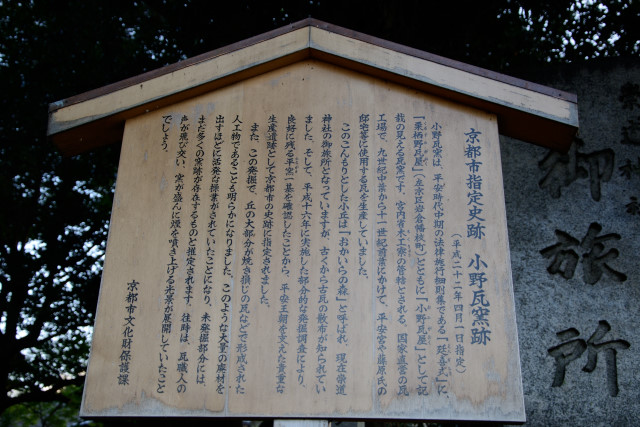 京都市指定史跡　小野瓦窯跡
（平成二十二年四月一日指定）
小野瓦窯は、平安時代中期の法律施行細則集である『延喜式』に
「栗栖野瓦屋」（左京区岩倉幡枝町）とともに「小野瓦屋」として記
載の見える瓦窯です。宮内省木工寮の管轄とされる、国家直営の瓦
工場で、九世紀中葉から十一世紀前葉にかけて、平安宮や藤原氏の
邸宅等に使用する瓦を生産していました。
このこんもりとした小丘は「おかいらの森」と呼ばれ、現在崇道
神社の御旅所となっていますが、古くから古瓦の散布が知られてい
ました。そして、平成十六年に実施した部分的な発掘調査により、
良好に残る平窯一基を確認したことから、平安王朝を支えた貴重な
生産遺跡として京都市の史跡に指定されました。
また、この発掘で、丘の大部分が焼き損じの瓦などで形成された
人工物であることも明らかになりました。このような大量の廃材を
出すほどに活発な操業がされていたことになり、未発掘部分には、
まだ多くの窯跡が存在するものと推定されます。往時は、瓦職人の
声が飛び交い、窯が盛んに煙を噴き上げる光景が展開していたこと
でしょう。
京都市文化財保護課
御旅所